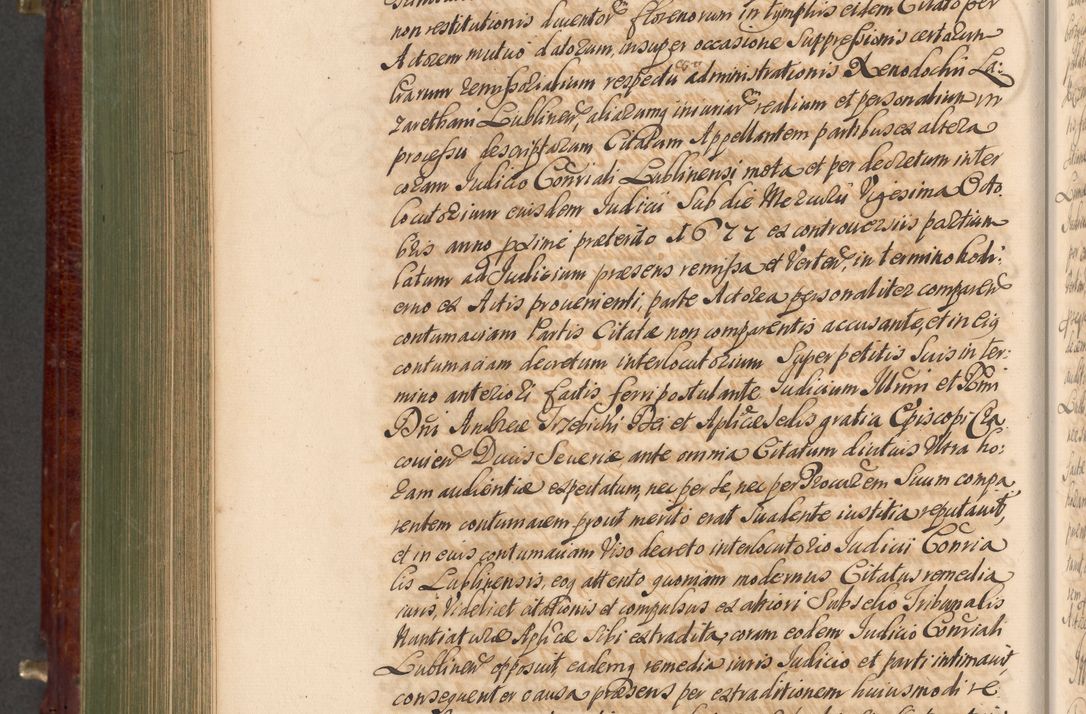 non restitutionis ducentor florenorum in tymphis eidem Citato per
Actorem mutuo datorum, insuper occasione Suppressionis certarum
litrarum remissorialium respectu administrationis Xenodochii La:
zarethani Lublinen, aliarumq iniuriar realium et personalium in
processu descriptarum Citatam Appellantem partibus ex altera
coram Judicio Conviali Lublinensi mota et per decretum inter
locutorium eiusdem Judicii Sub die Mercurii Vigesima Octo
bris anno pxime praeterito 1677 ex controversiis partium
latum ad Judicium praesens remissa et Verten, in termino hodi:
erno ex Actis provenienti, parte Actorea personaliter comparen
contumaciam Partis Citatae non comparentis accusante, et in eiq
contumaciam decretum interlocutorium Super petitis Suis in ter:
mino anteriori factis ferri postulante Judicium Illmi et Rmi
Dni Andreae Trzebicki Dei et Aplicae Sedis gratia Episcopi Cra
covien Ducis Severiae ante omnia Citatum diutius Ultra ho:
ram audientiae expectatum, nec per se, nec per Procurem Suum compa
rentem contumacem prout merito erat Suadente iustitia reputavit,
et in eius contumaciam Viso decreto interlocutorio Judicii Convia
lis Lublinensis, eoq attento quoniam modernus Citatus remedia
iuris, Videlicet citationis et compulsus ex altiori Subselio Tribunalis
Nuntiaturae Aplicae Sibi extradita, coram eodem Judicio Conviali
Lublinen opposuit, eademq remedia iuris Judicio et parti intimavit,
consequenter causa praesens per extraditionem huiusmodi re